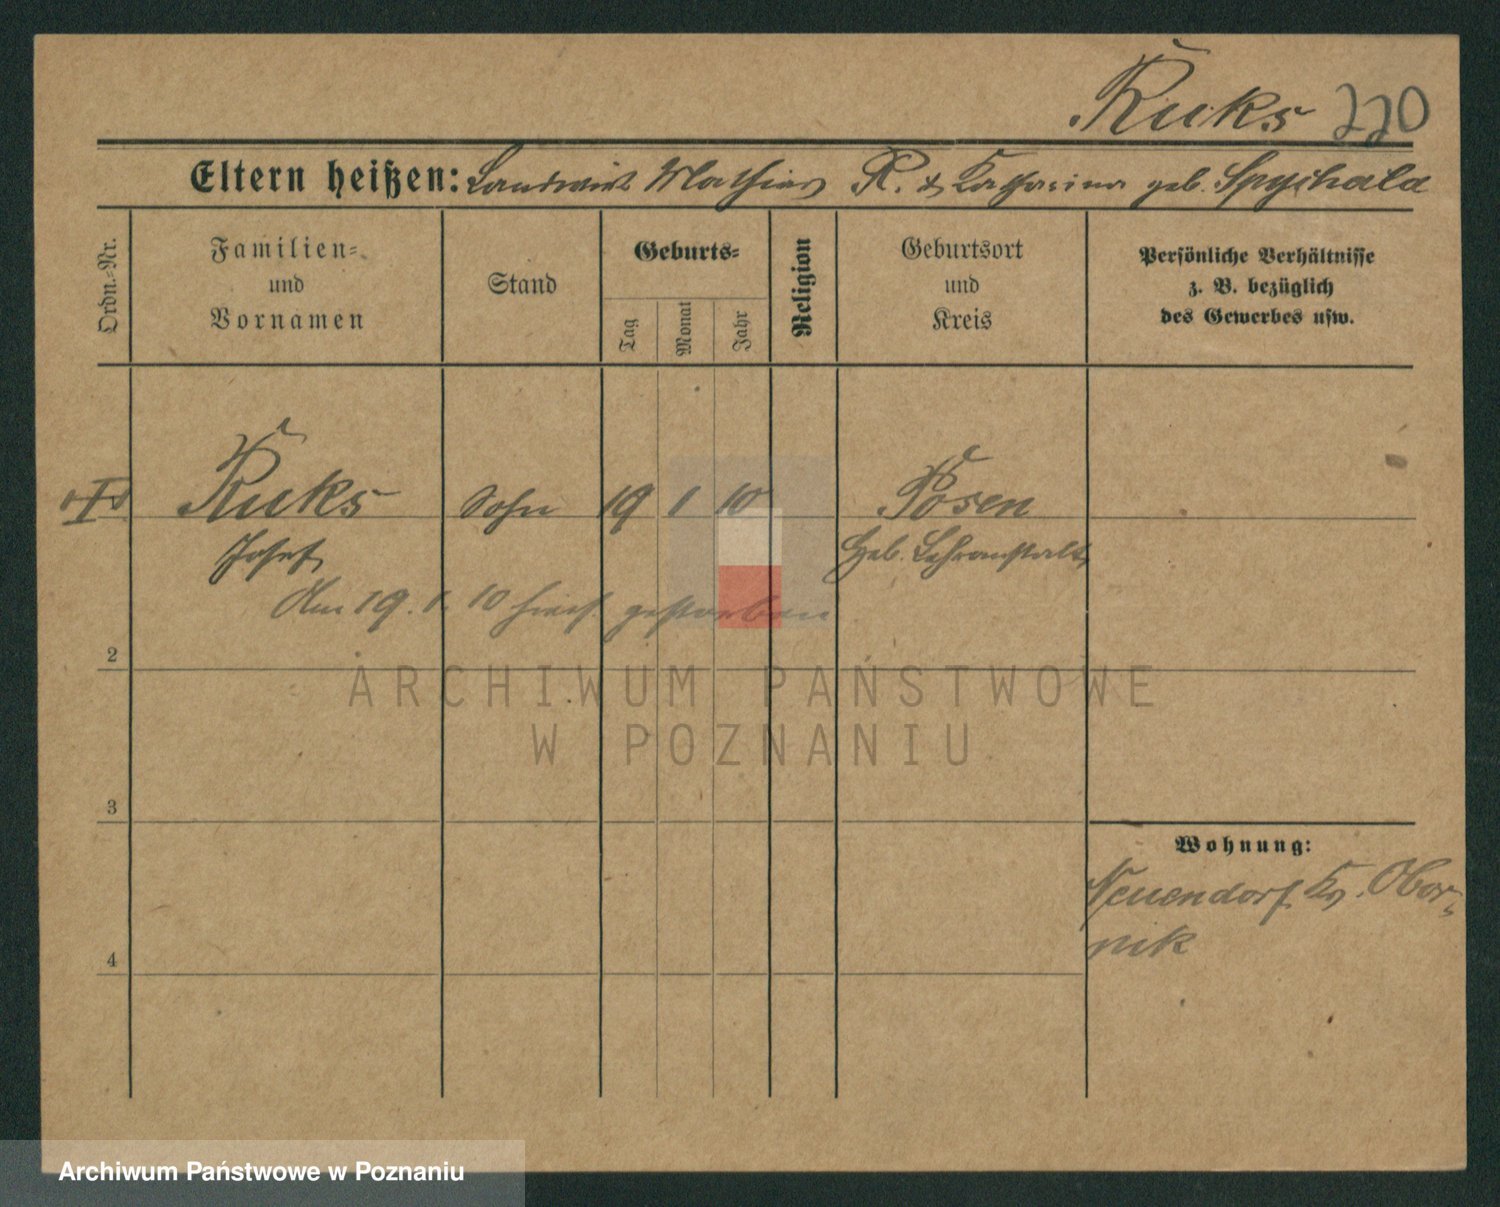 Kuks 220
Eltern heißen: Landwirt Mathias K. & Katharina geb. Spychala
Ordn.-Nr.
Familien-
und
Vornamen
Stand
Geburts-
Tag
Monat
Jahr
Religion
Geburtsort
und
Kreis
Persönliche Verhältnisse
z. B. bezüglich
des Gewerbes usw.
Kuks Sohn 19 1 10 Posen
Josef Heb. Lehranstalt
Am 19. 1. 10 hier gestorben
2
ARCHIWUM PAŃSTWOWE
W POZNANIU
3
Wohnung:
Neuendorf Kr. Obor-
nik
4
Archiwum Państwowe w Poznaniu